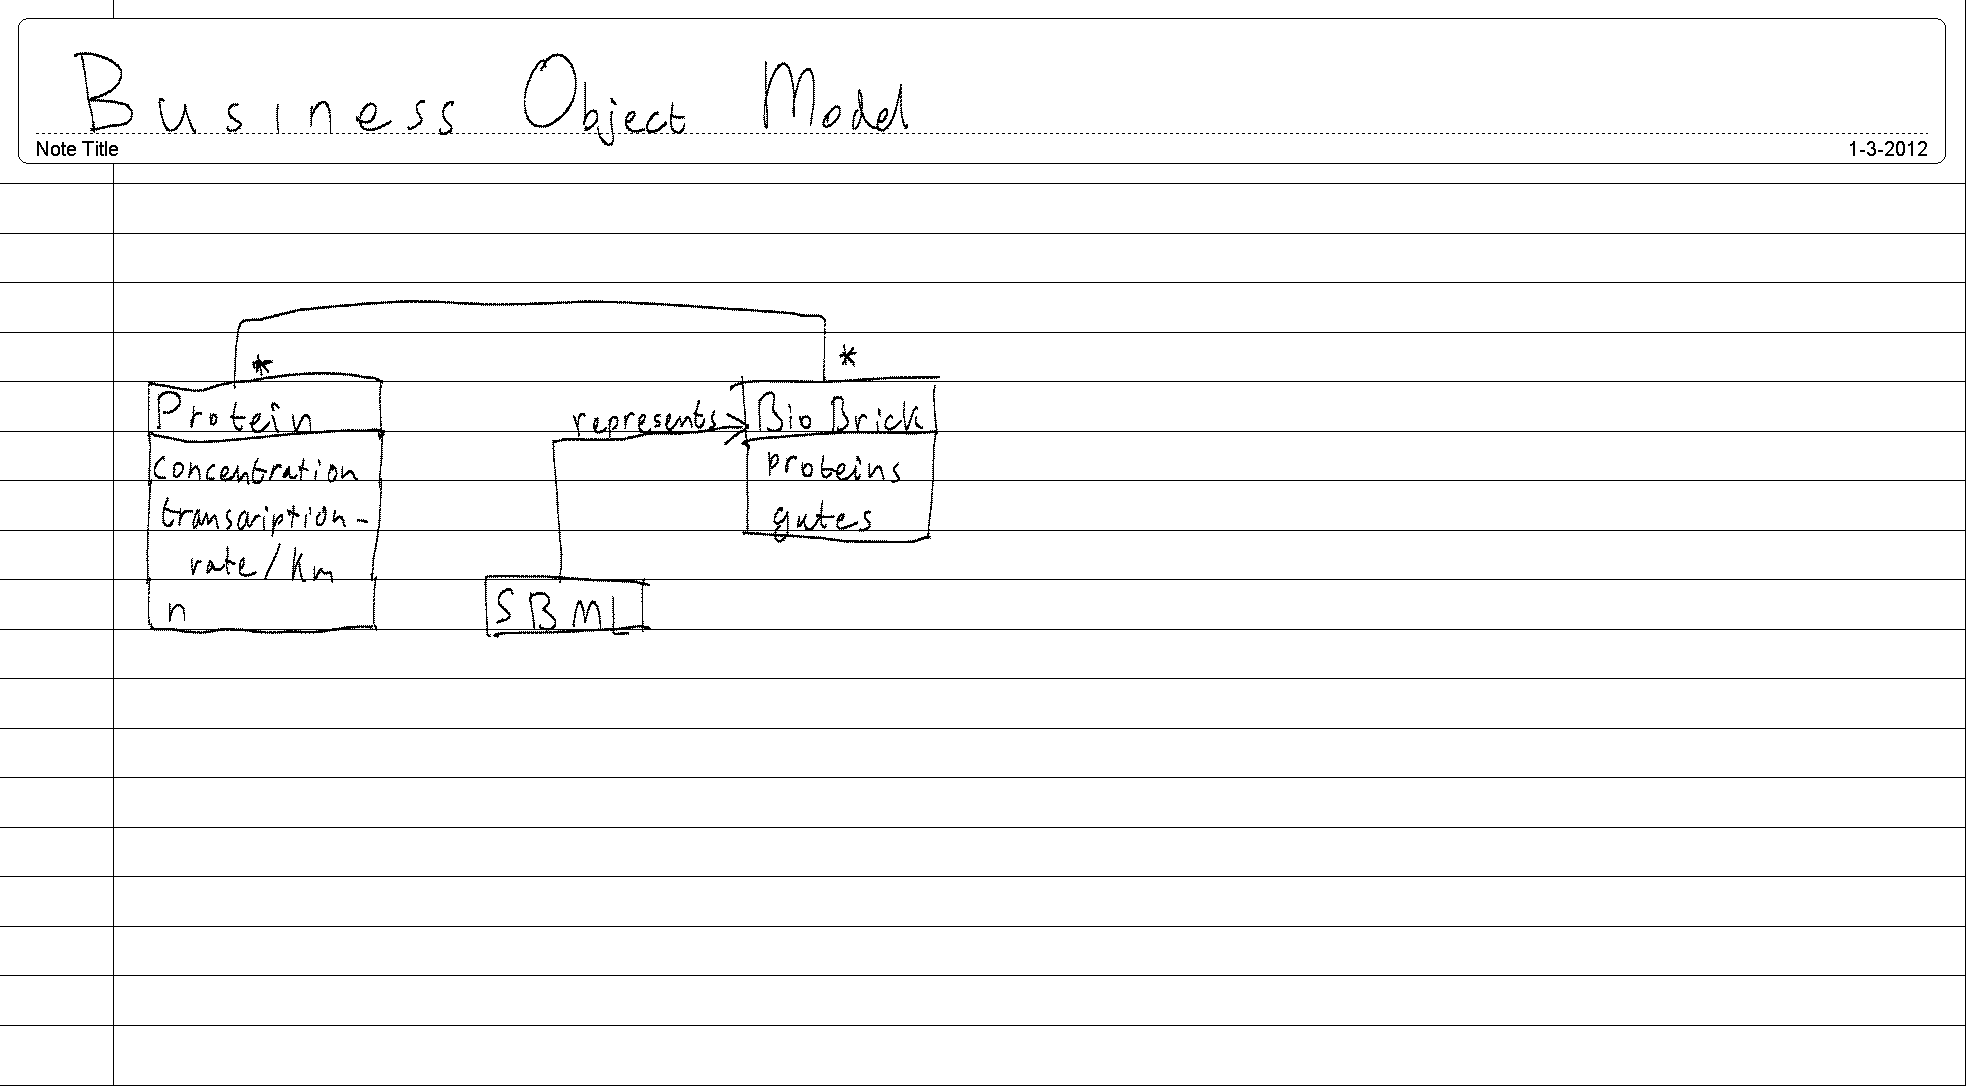 Business Object Model
Note Title
1-3-2012
*
*
Protein
concentration
transcription-
rate/Km
n
represents
BioBrick
proteins
gates
SBML